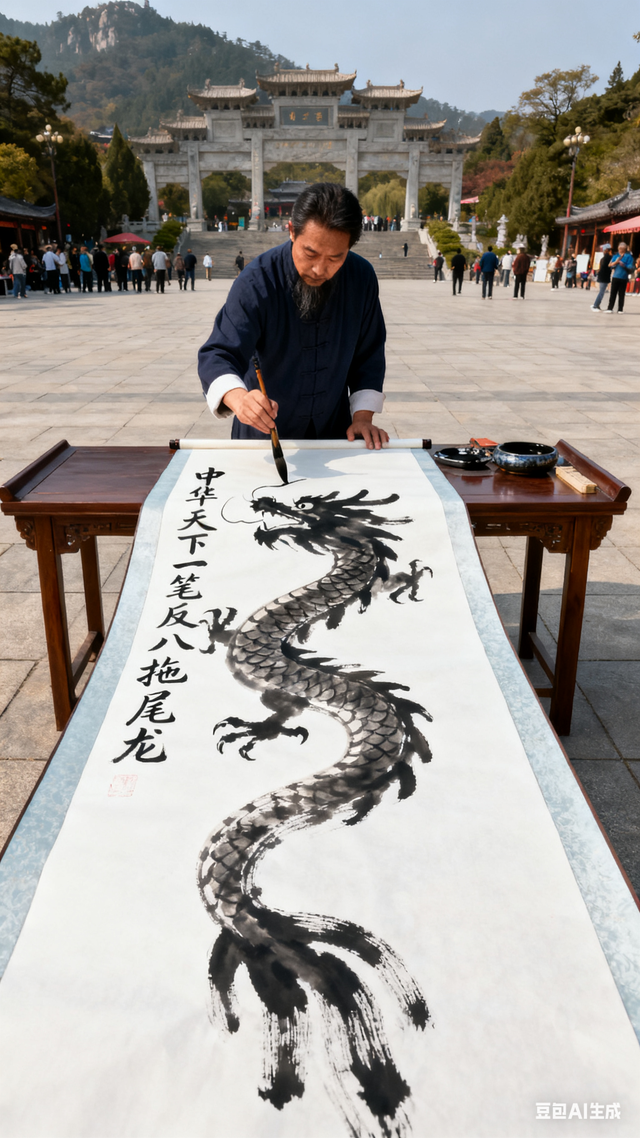 中华天下一笔反八拖尾龙
豆包AI生成